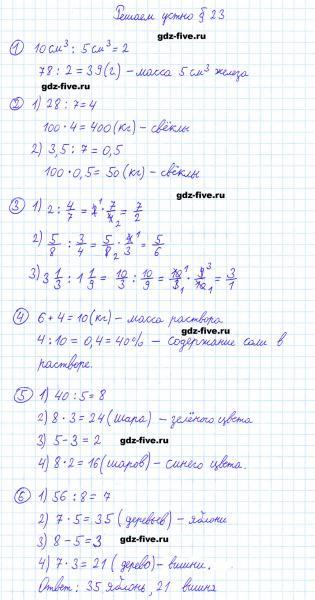 Решаем устно § 23
① 10 см³ : 5 см³ = 2
78 : 2 = 39 (г) - масса 5 см³ железа
gdz-five.ru
② 1) 28 : 7 = 4
100 · 4 = 400 (кг) - свёклы
gdz-five.ru
2) 3,5 : 7 = 0,5
100 · 0,5 = 50 (кг) - свёклы
gdz-five.ru
③ 1) 2 : 4/7 = 2¹ · 7/4₂ = 7/2
2) 5/8 : 3/4 = 5/8₂ · 4¹/3 = 5/6
gdz-five.ru
3) 3 1/3 : 1 1/9 = 10/3 : 10/9 = 10¹/3₁ · 9³/10₁ = 3/1
④ 6 + 4 = 10 (кг) - масса раствора
gdz-five.ru
4 : 10 = 0,4 = 40% - содержание соли в
растворе.
gdz-five.ru
⑤ 1) 40 : 5 = 8
2) 8 · 3 = 24 (шара) - зелёного цвета
3) 5 - 3 = 2
gdz-five.ru
4) 8 · 2 = 16 (шаров) - синего цвета.
gdz-five.ru
⑥ 1) 56 : 8 = 7
2) 7 · 5 = 35 (деревьев) - яблони
3) 8 - 5 = 3
gdz-five.ru
4) 7 · 3 = 21 (дерево) - вишни.
Ответ: 35 яблонь, 21 вишня
gdz-five.ru